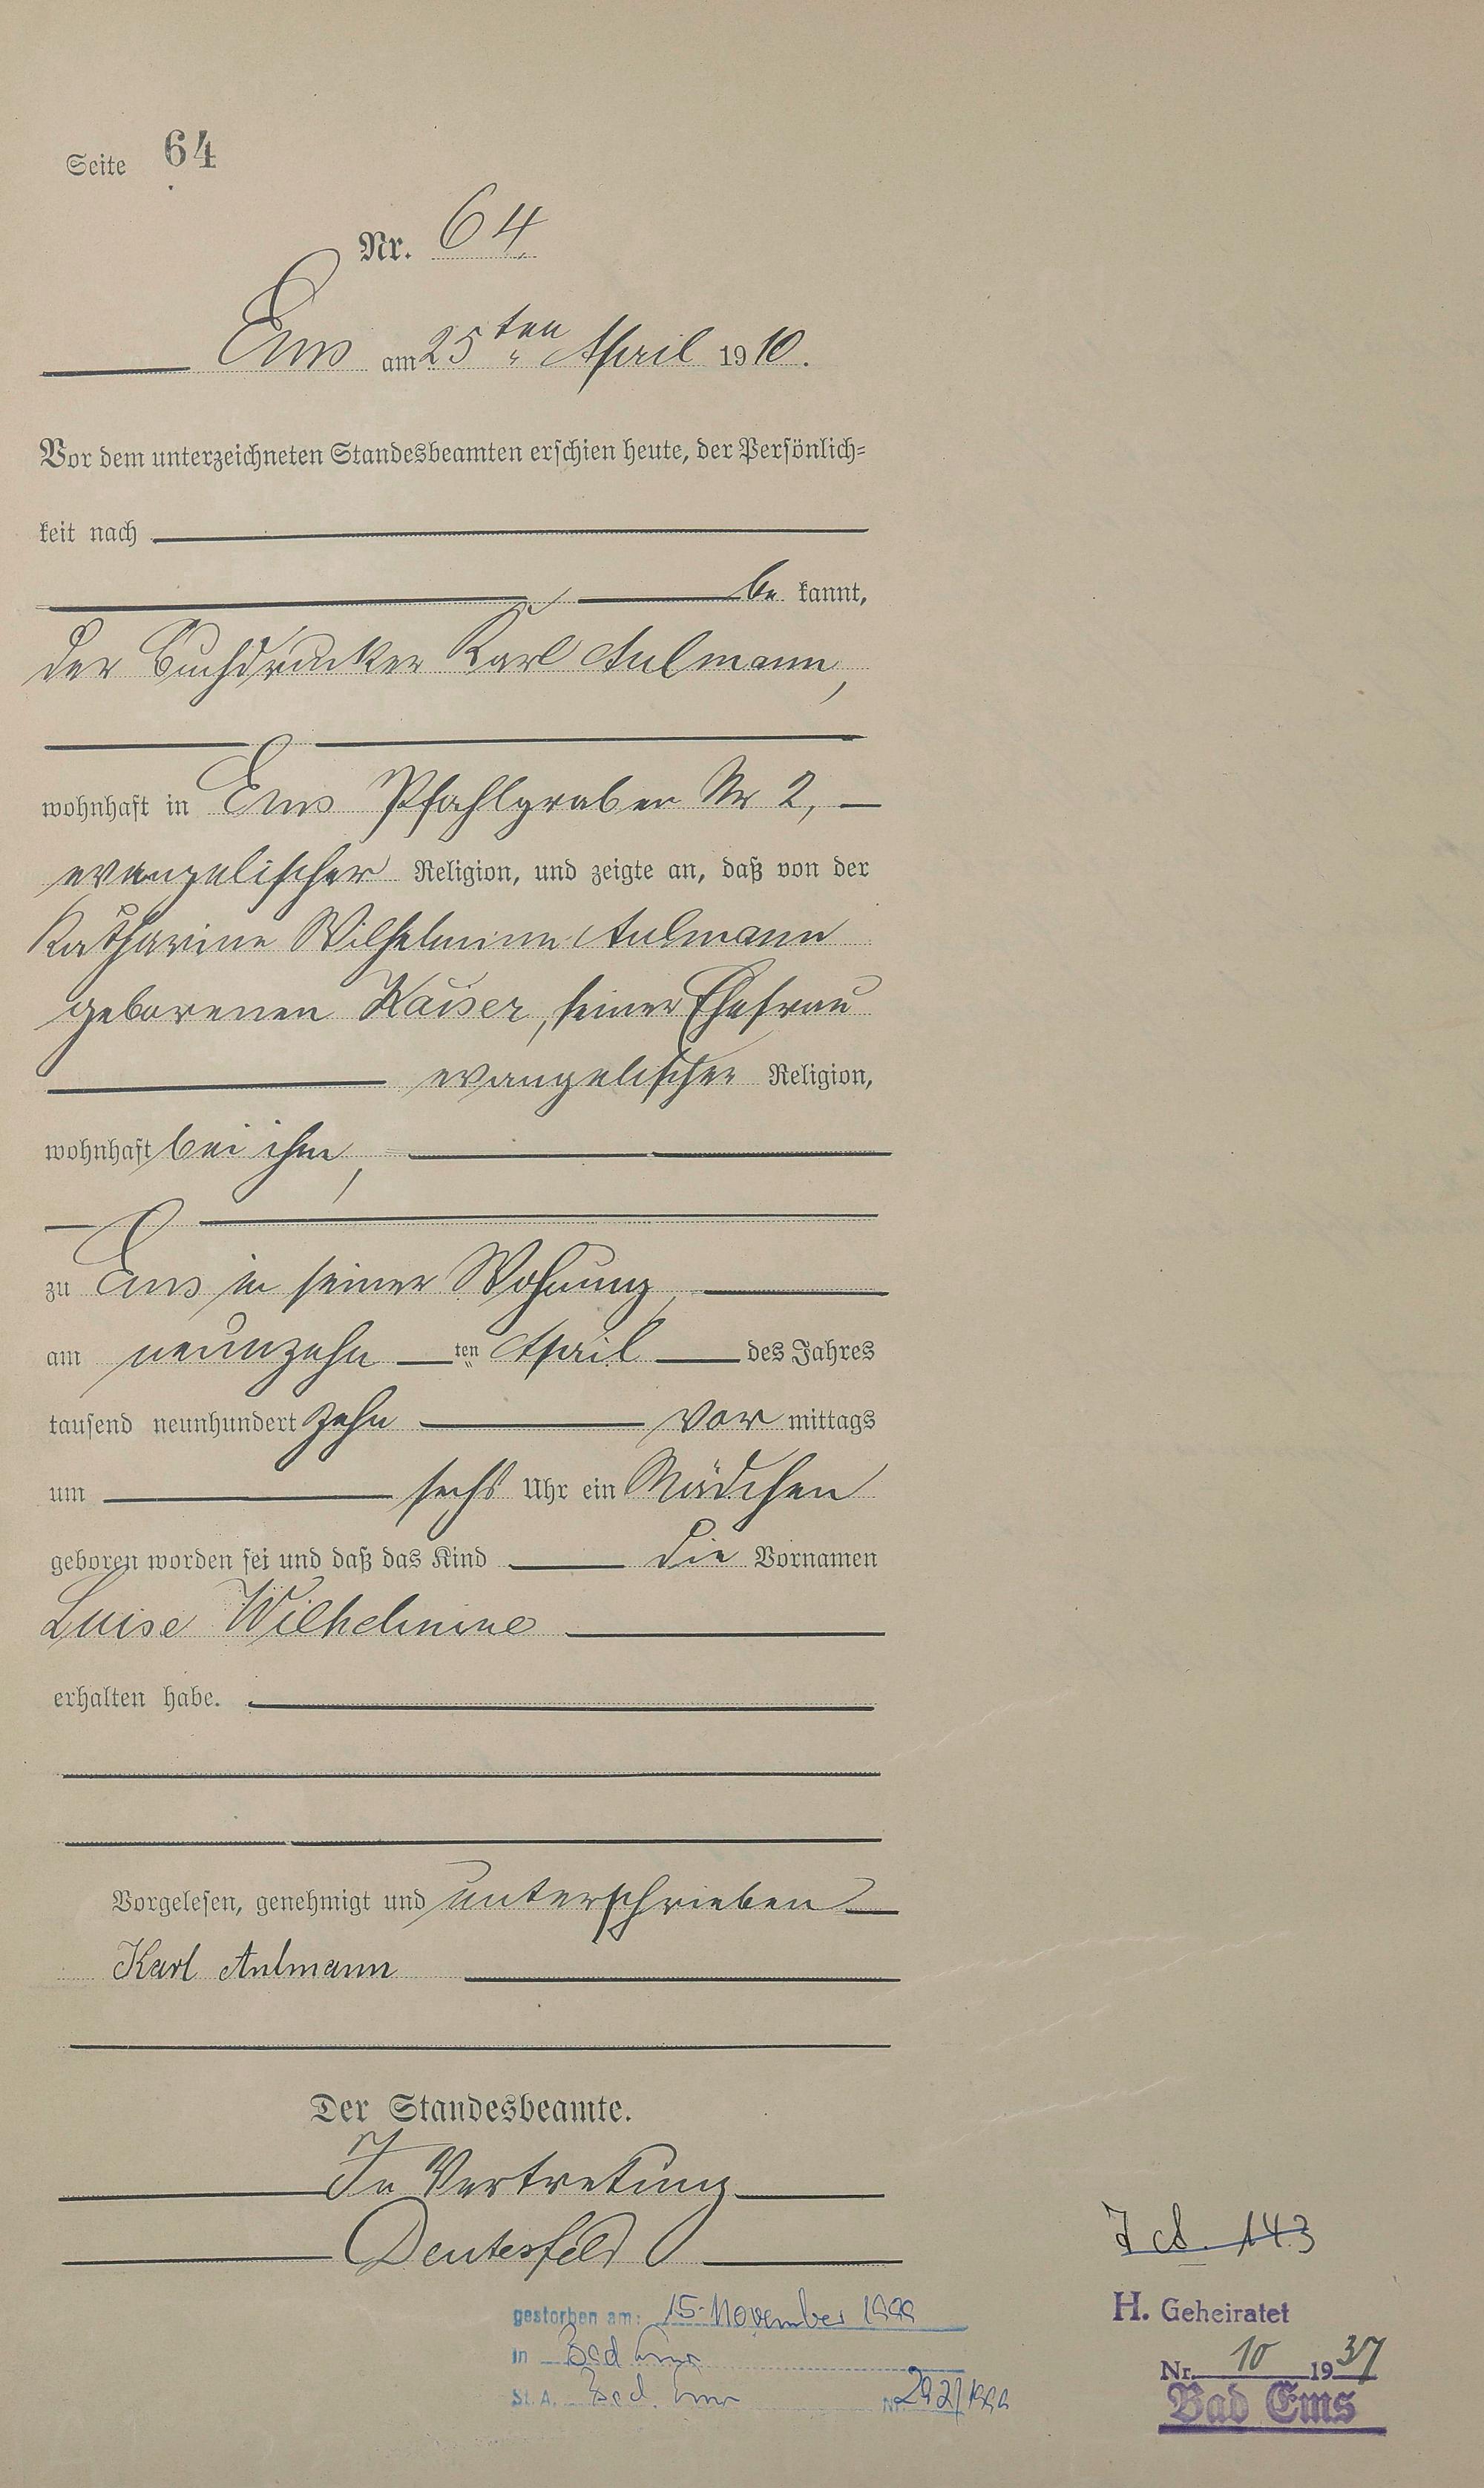 Seite 64
Nr. 64.
Ems am 25ten April 1910.
Vor dem unterzeichneten Standesbeamten erschien heute, der Persönlich=
keit nach
be kannt,
der Buchdrucker Karl Aulmann,
wohnhaft in Ems Pfahlgraben Nr 2,
evangelischer Religion, und zeigte an, daß von der
Katharine Wilhelmine Aulmann
geborenen Kaiser, seiner Ehefrau
evangelischer Religion,
wohnhaft bei ihm,
zu Ems in seiner Wohnung,
am neunzehn ten April des Jahres
tausend neunhundert zehn vor mittags
um sechs Uhr ein Mädchen
geboren worden sei und daß das Kind die Vornamen
Luise Wilhelmine
erhalten habe.
Vorgelesen, genehmigt und unterschrieben
Karl Aulmann
Der Standesbeamte.
In Vertretung
Deutesfeld
143
gestorben am: 15. November 1999
H. Geheiratet
in Bad Ems
Nr. 10 1937
St. A. Bad Ems Nr. 292/1999
Bad Ems